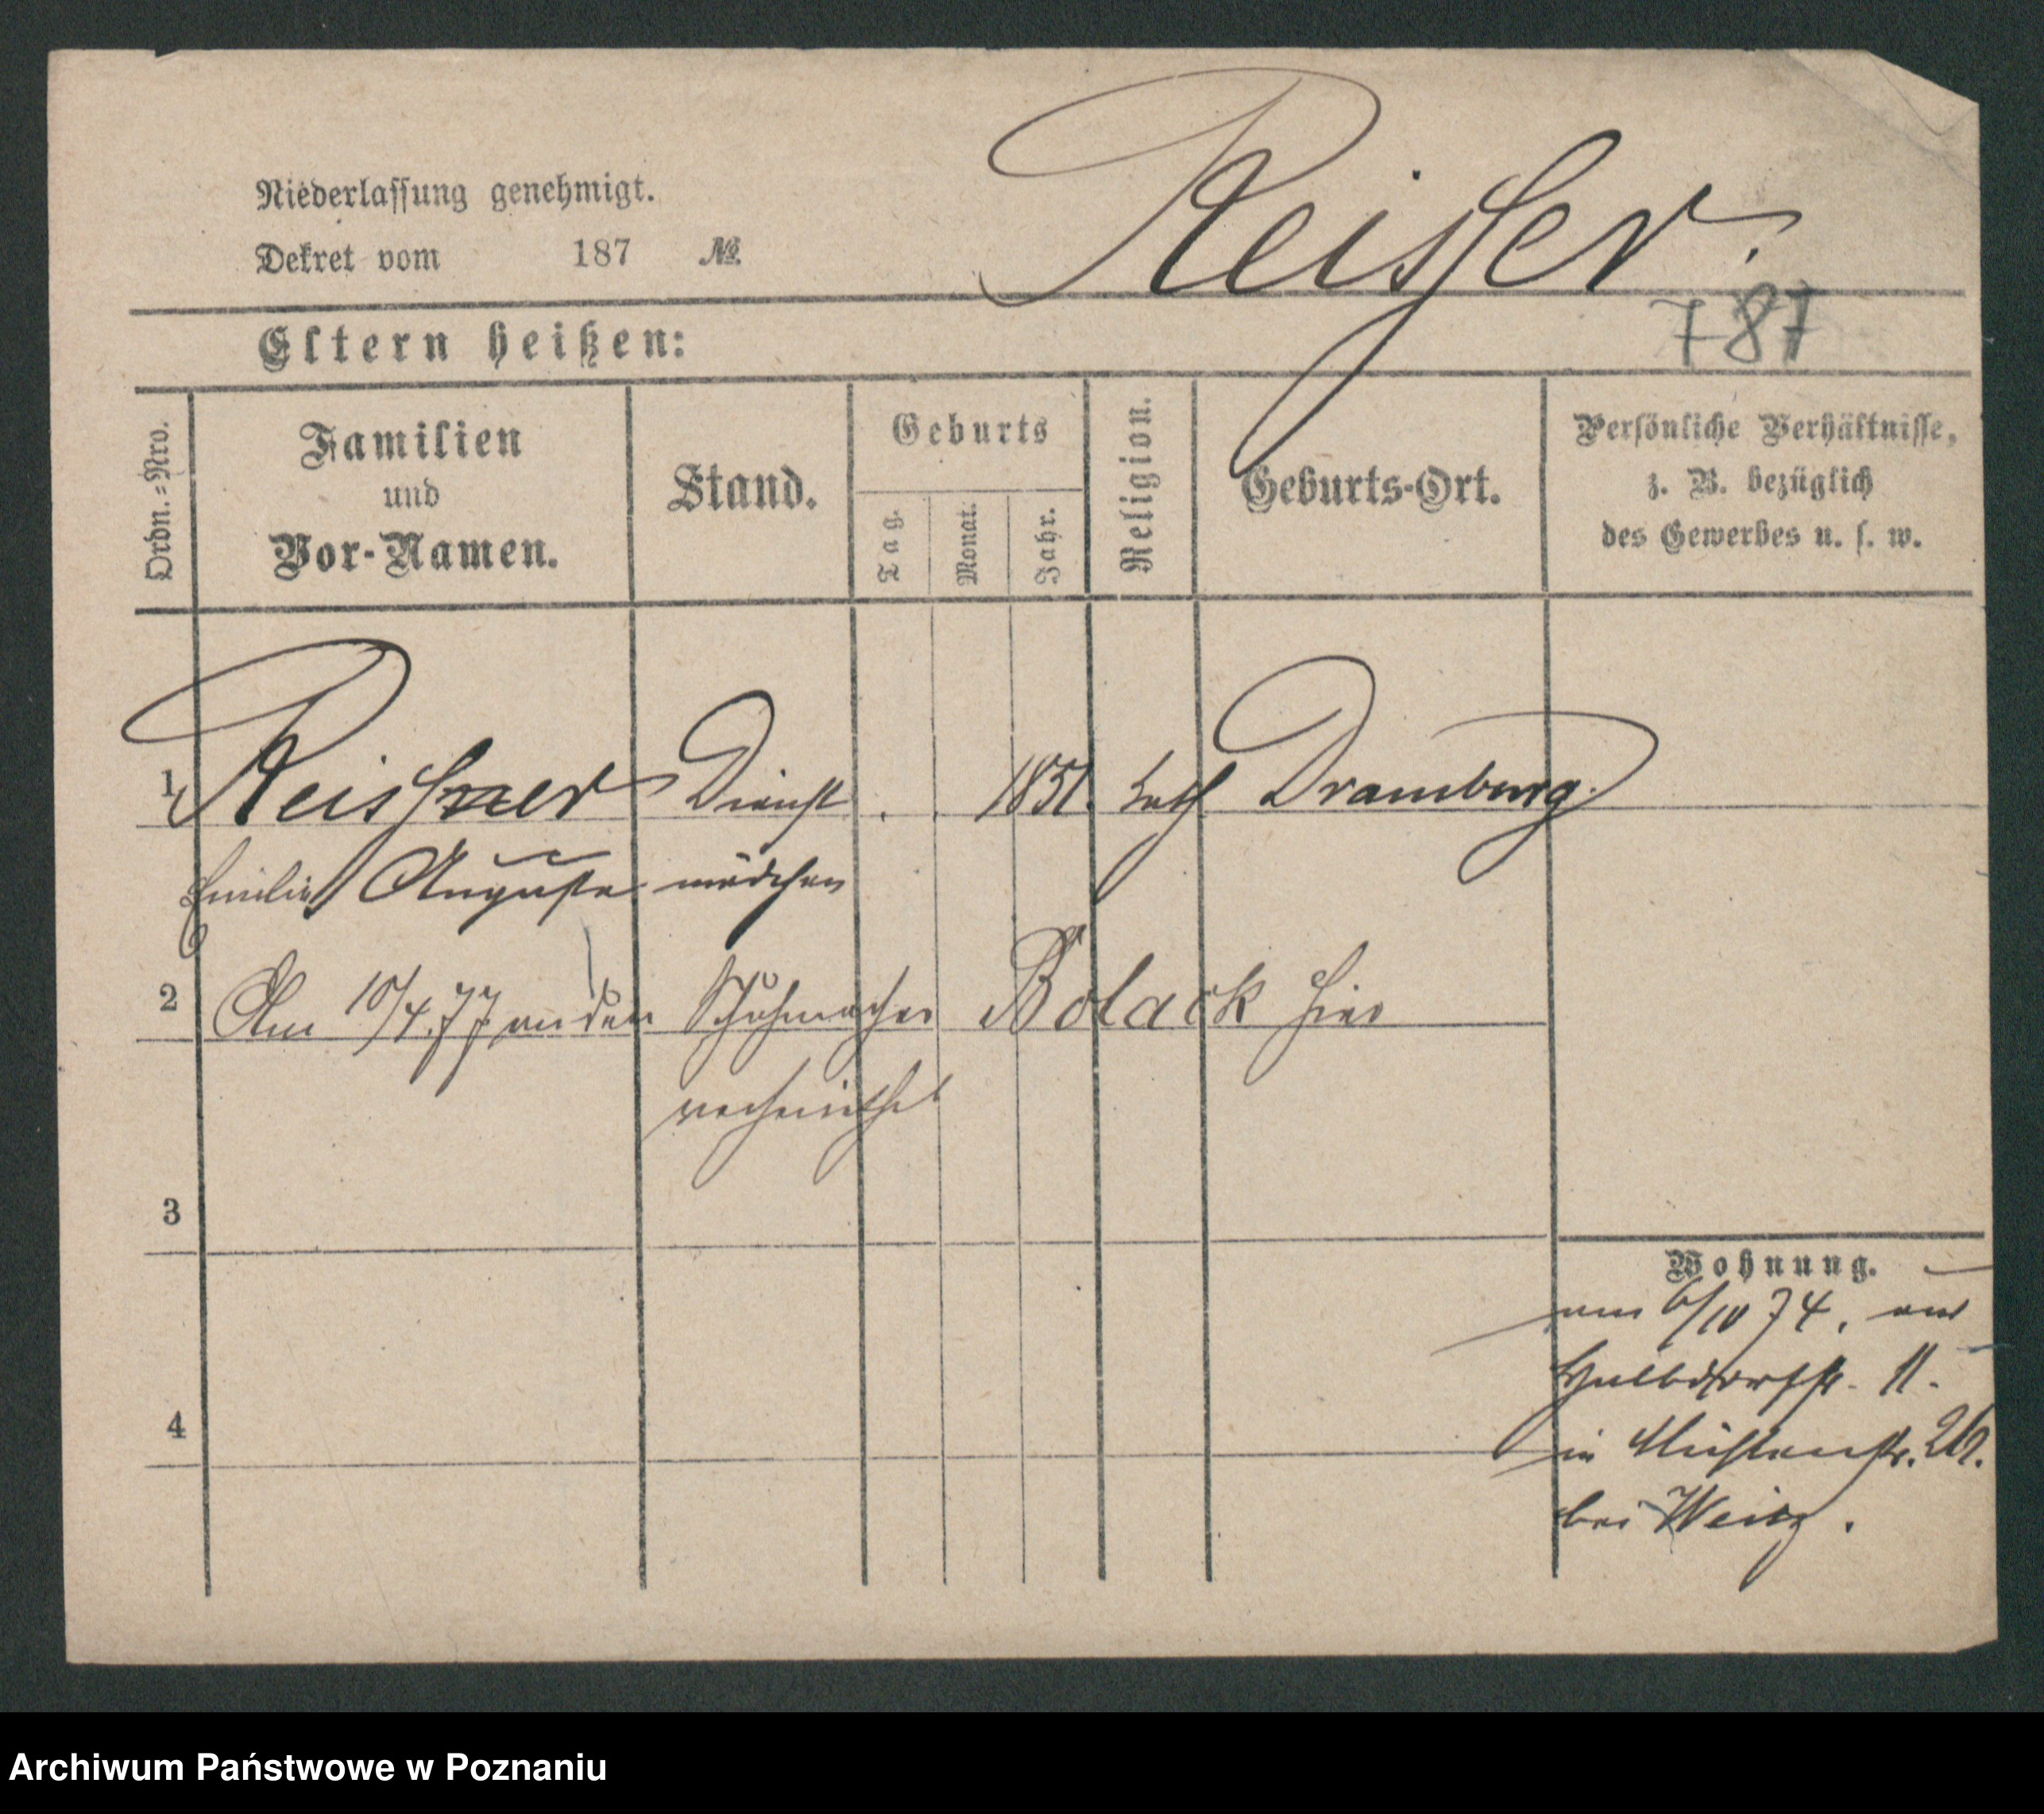 Reisser.
Niederlassung genehmigt.
Dekret vom 187 №
787
Eltern heißen:
Ordn.=Nro.
Familien
und
Vor-Namen.
Stand.
Geburts
Tag.
Monat.
Jahr.
Religion.
Geburts-Ort.
Persönliche Verhältnisse,
z. B. bezüglich
des Gewerbes u. s. w.
1 Dienst . . 1851. Luth Dramburg.
Emilie Auguste mädchen
2 Am 10/4.77 an den Schuhmacher Bolack hier
verheirathet
3
Wohnung.
am 6/10 74.
Halbdorfstr. 11.
4
in Mühlenstr. 26.
bei
Archiwum Państwowe w Poznaniu